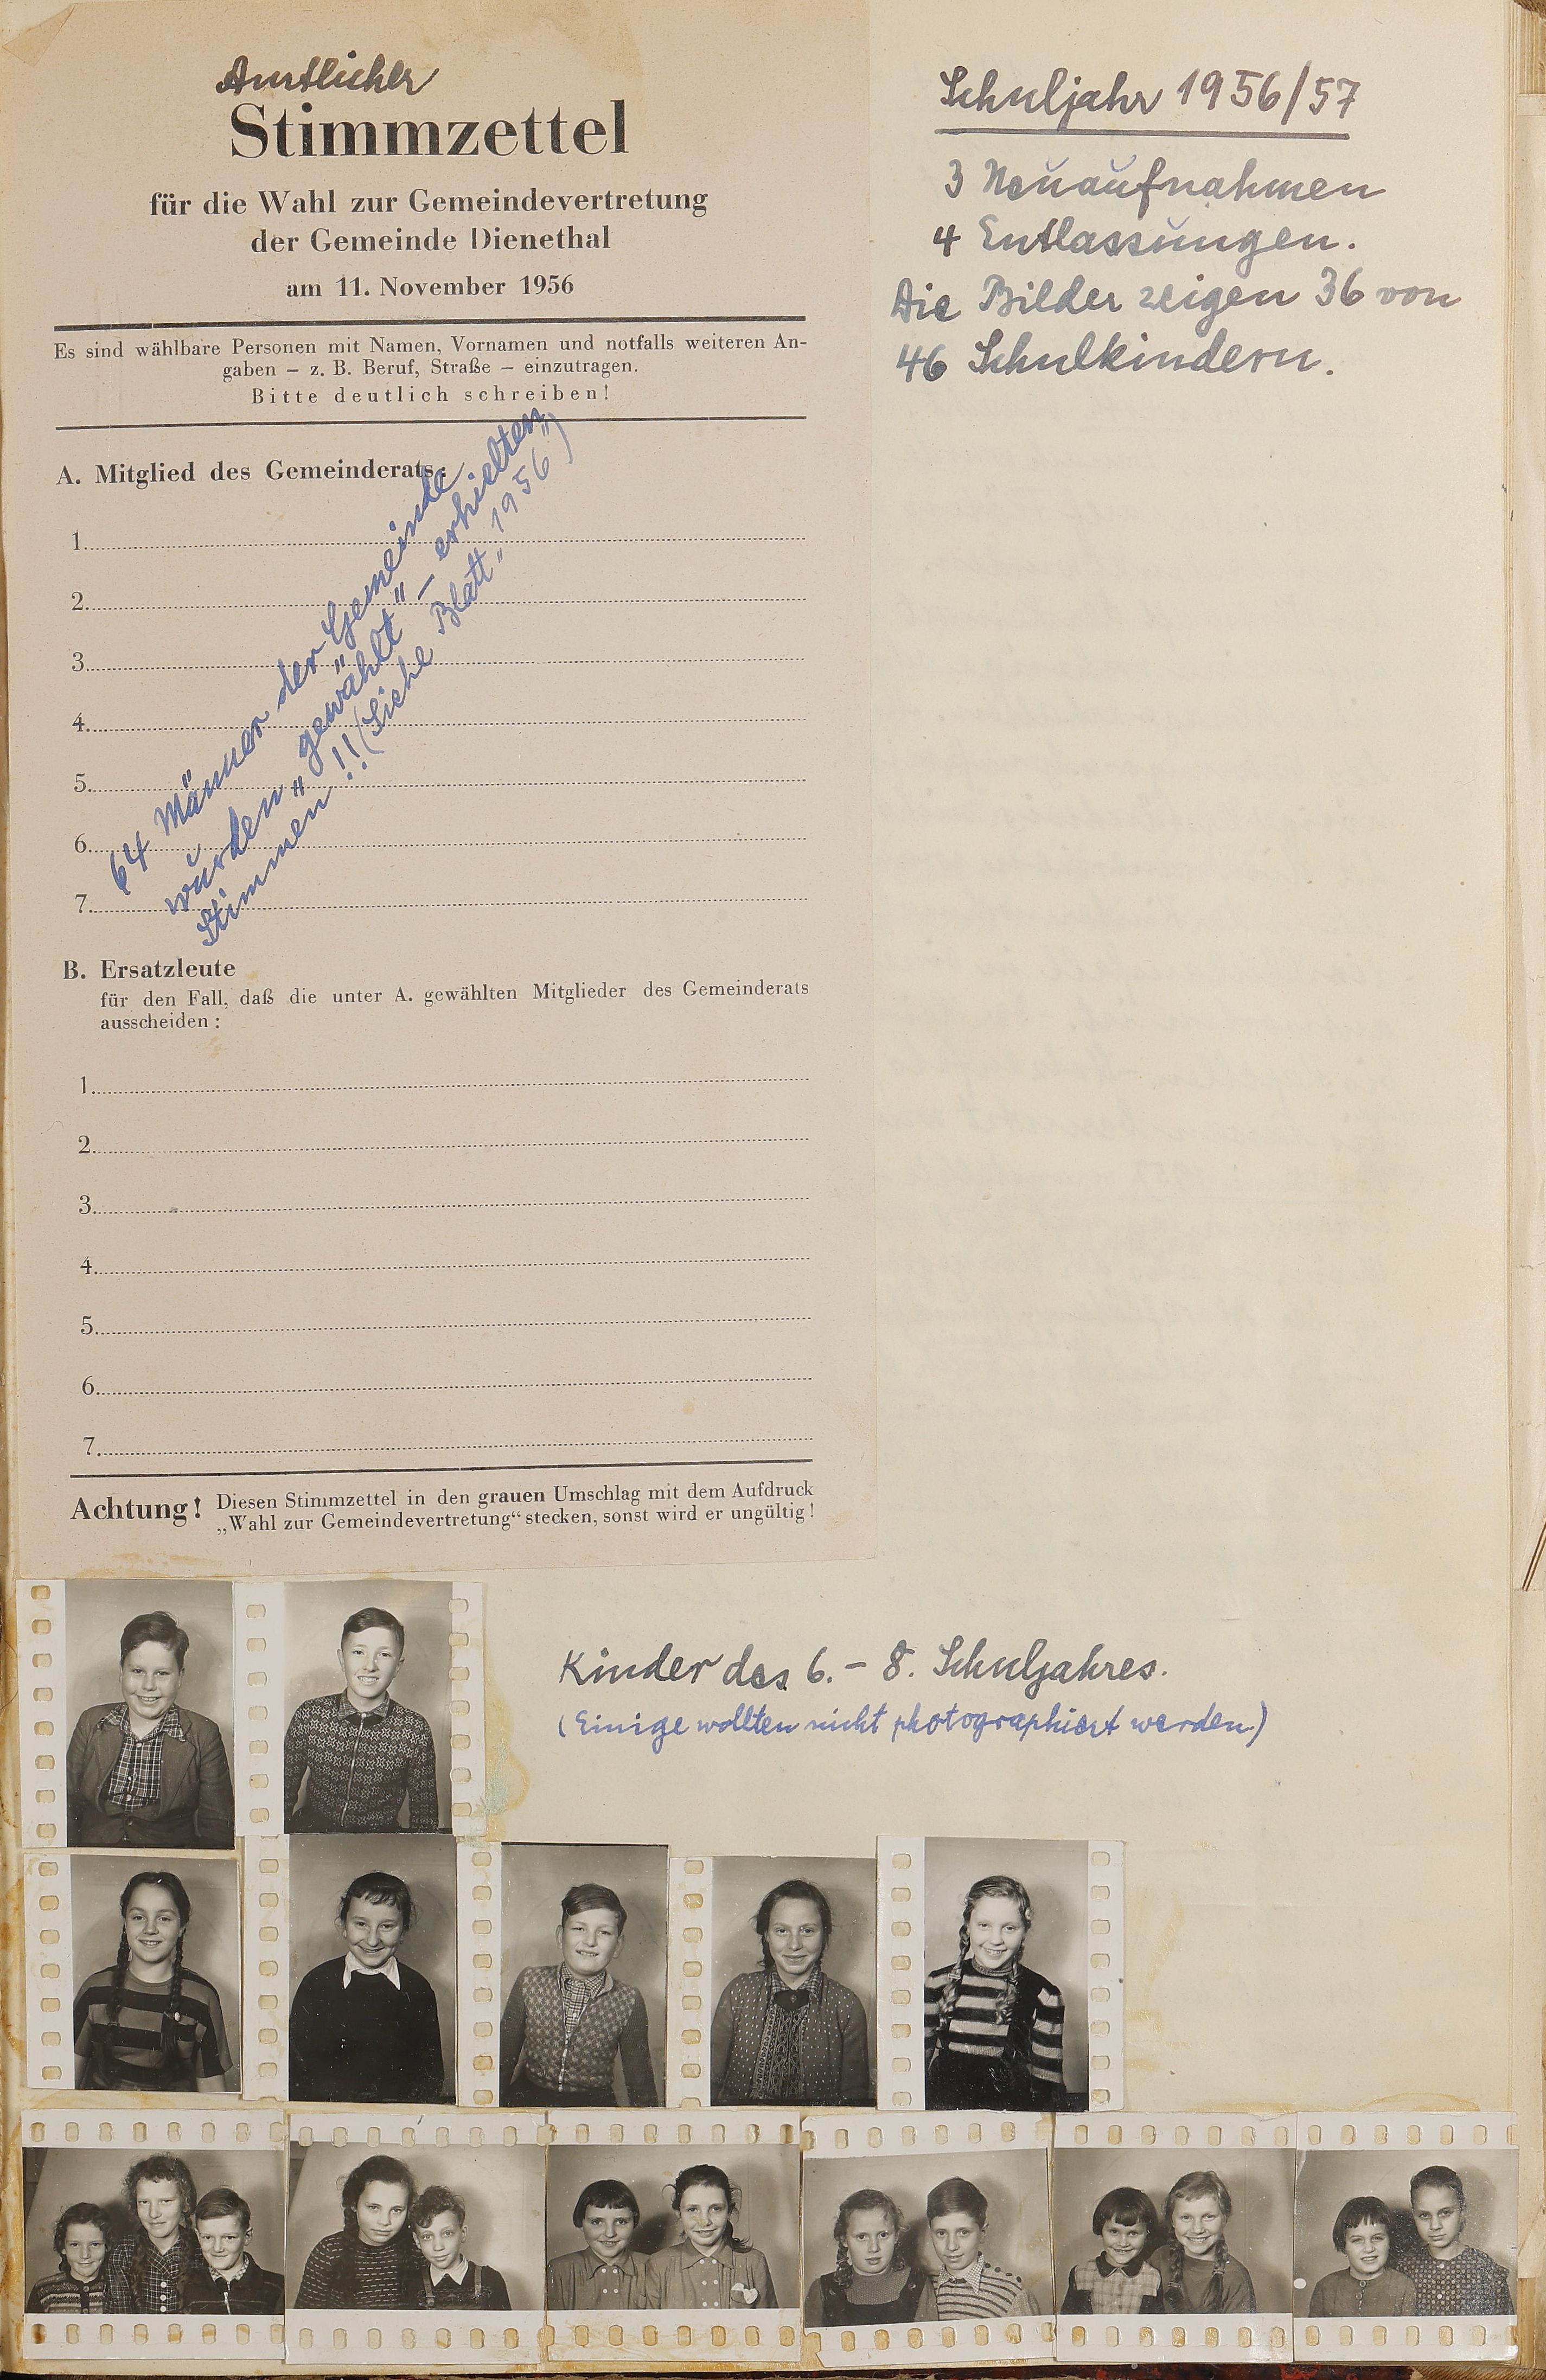 Amtlicher
Stimmzettel
für die Wahl zur Gemeindevertretung
der Gemeinde Dienethal
am 11. November 1956
Es sind wählbare Personen mit Namen, Vornamen und notfalls weiteren An-
gaben – z. B. Beruf, Straße – einzutragen.
Bitte deutlich schreiben!
A. Mitglied des Gemeinderats:
1.
2.
3.
4.
5.
6.
7.
64 Männer der Gemeinde
wurden „gewählt" – erhielten
Stimmen!! (Siehe „Blatt" 1956")
B. Ersatzleute
für den Fall, daß die unter A. gewählten Mitglieder des Gemeinderats
ausscheiden :
1.
2.
3.
4.
5.
6.
7.
Achtung! Diesen Stimmzettel in den grauen Umschlag mit dem Aufdruck
„Wahl zur Gemeindevertretung" stecken, sonst wird er ungültig!
Schuljahr 1956/57
3 Neuaufnahmen
4 Entlassungen.
Die Bilder zeigen 36 von
46 Schulkindern.
Kinder des 6. – 8. Schuljahres.
(Einige wollten nicht photographiert werden)